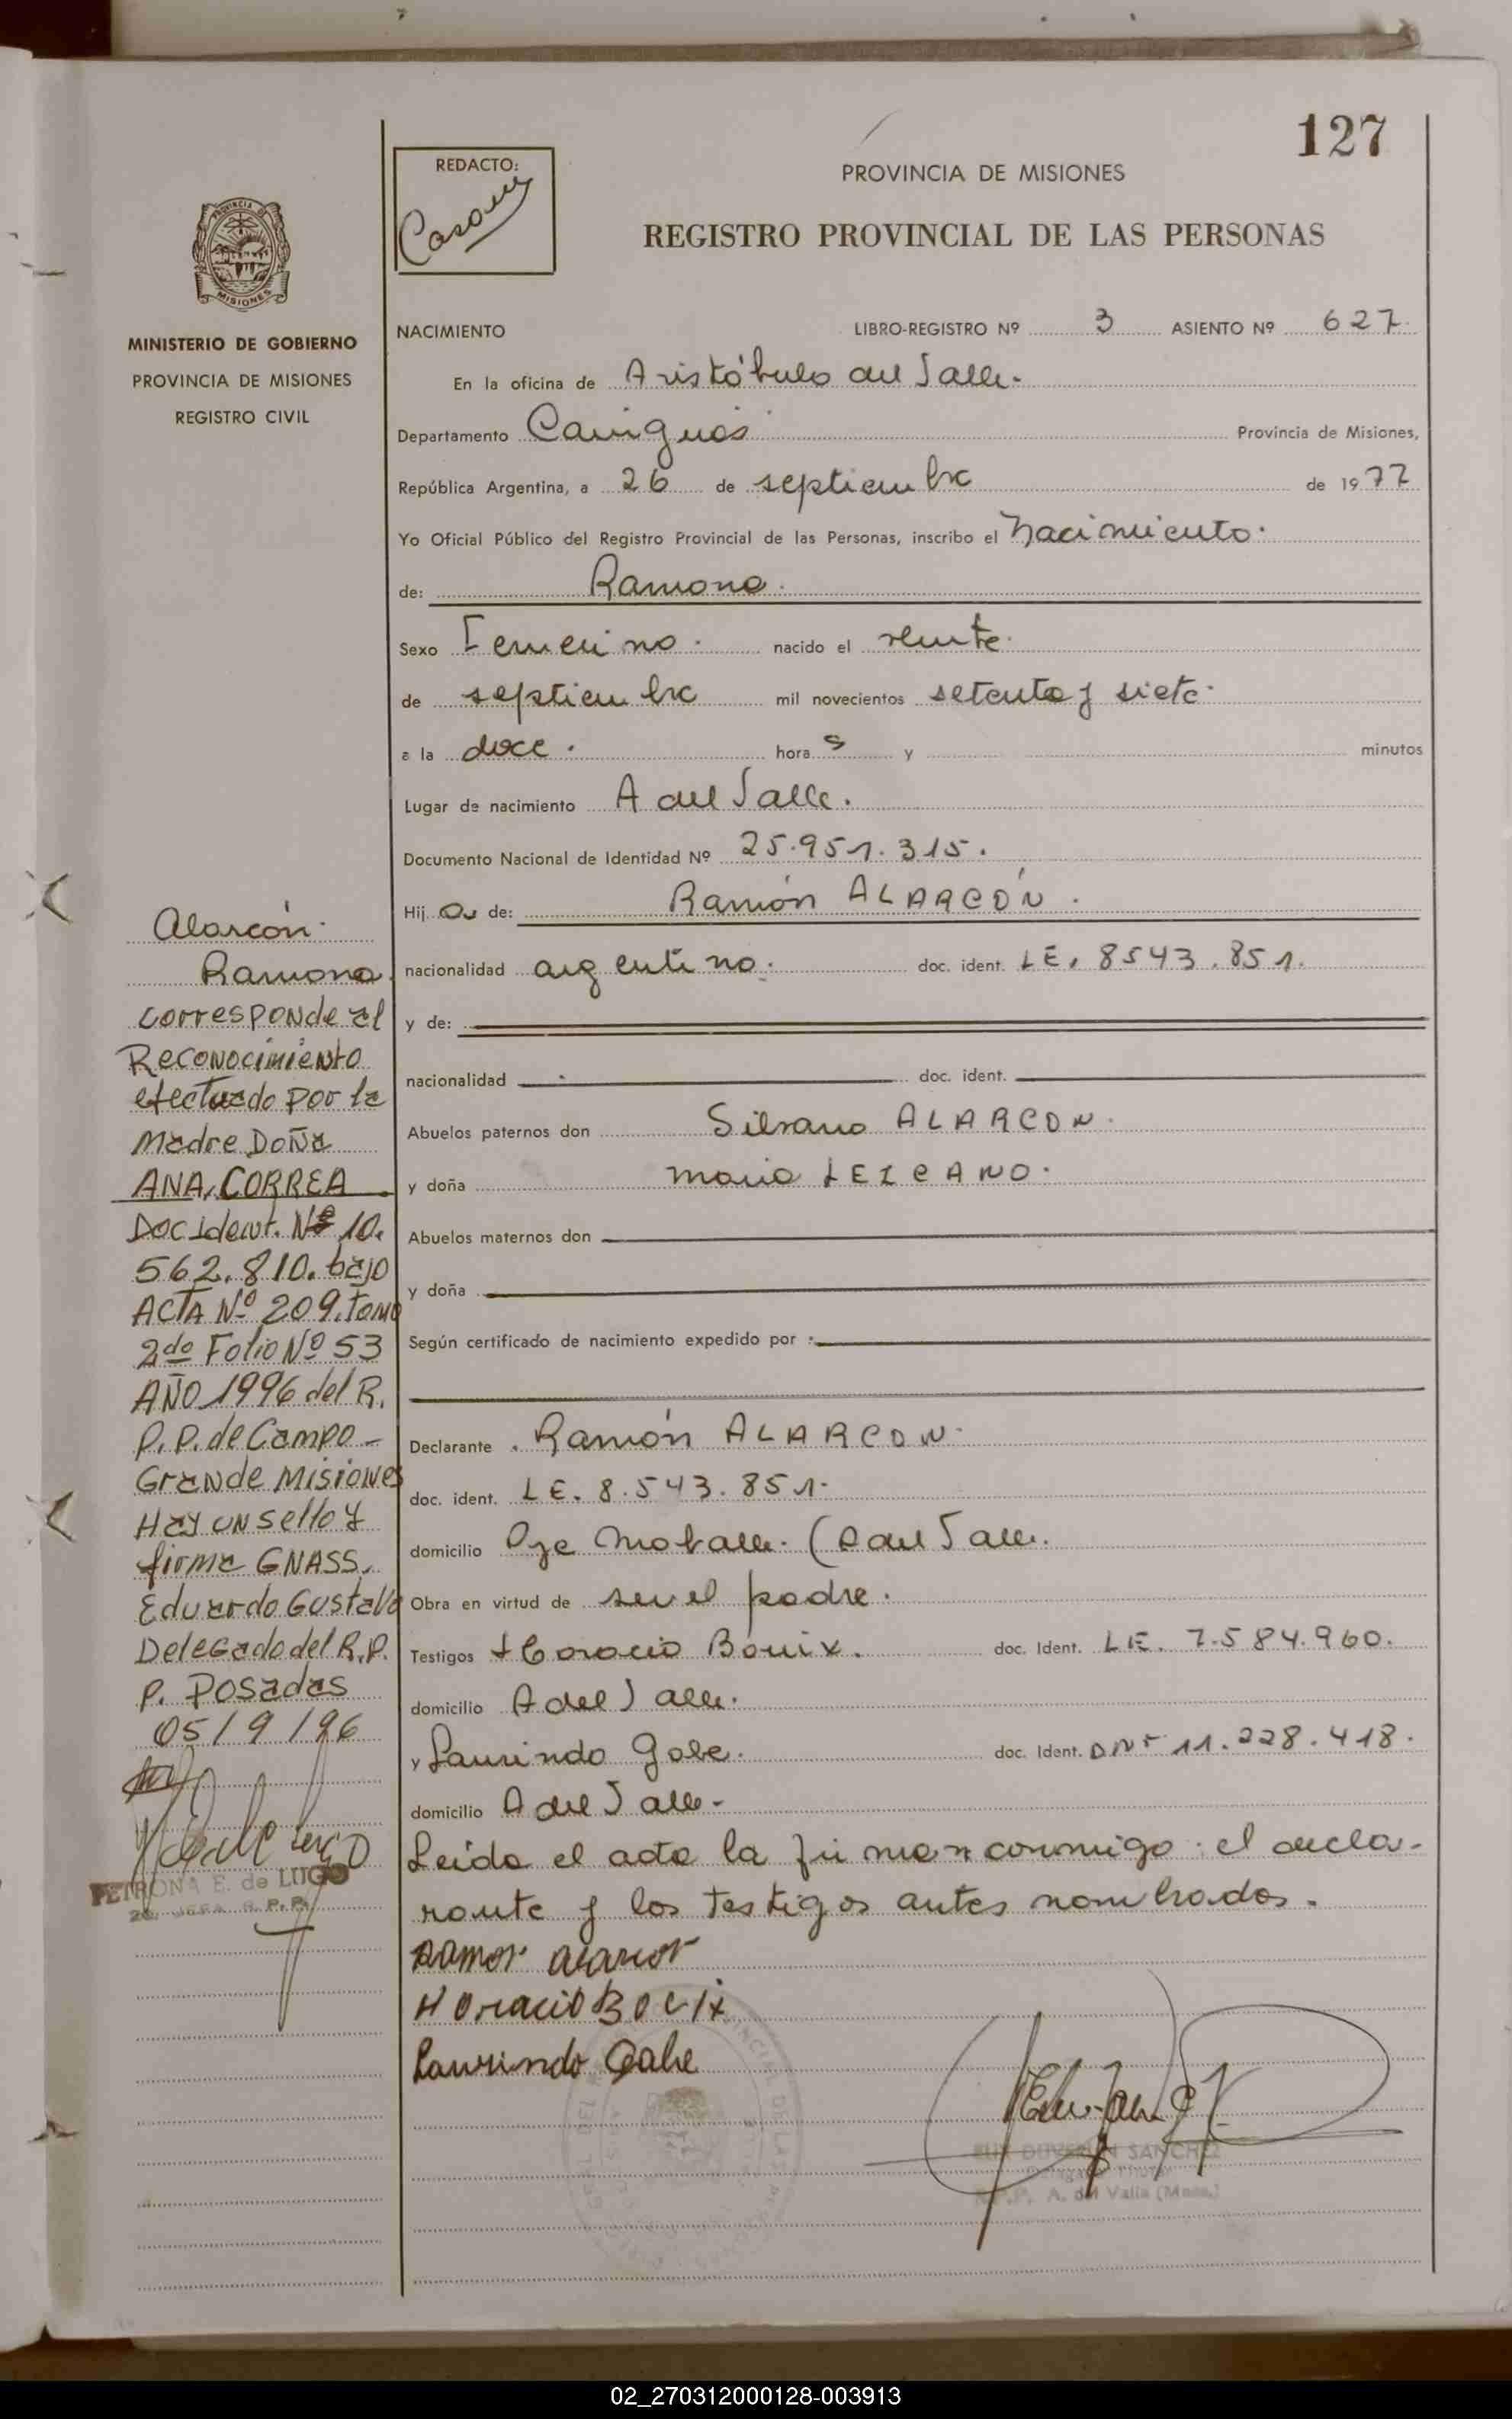 127
REDACTO:
PROVINCIA DE MISIONES
REGISTRO PROVINCIAL DE LAS PERSONAS
PROVINCIA DE
MISIONES
MINISTERIO DE GOBIERNO
PROVINCIA DE MISIONES
REGISTRO CIVIL
NACIMIENTO LIBRO-REGISTRO Nº 3 ASIENTO Nº 627.
En la oficina de Aristóbulo del Valle.
Departamento Cainguás Provincia de Misiones,
República Argentina, a 26 de septiembre de 1977
Yo Oficial Público del Registro Provincial de las Personas, inscribo el Nacimiento.
de: Ramona.
Sexo Femenino. nacido el veinte.
de septiembre mil novecientos setenta y siete.
a la doce. hora s y minutos
Lugar de nacimiento A del Valle.
Documento Nacional de Identidad Nº 25.951.315.
Hij a de: Ramón ALARCÓN.
nacionalidad argentino. doc. ident. LE. 8543.851.
y de:
nacionalidad doc. ident.
Abuelos paternos don Silvano ALARCON.
y doña María LEZCANO.
Abuelos maternos don
y doña
Según certificado de nacimiento expedido por :
Declarante Ramón ALARCON.
doc. ident. LE. 8.543.851.
domicilio (A del Valle.
Obra en virtud de ser el padre.
Testigos Horacio Bouix. doc. Ident. LE. 7.584.960.
domicilio A del Valle.
y Laurindo Gabe. doc. Ident. DNI 11.228.418.
domicilio A del Valle-
Leída el acta la firman conmigo: el decla-
rante y los testigos antes nombrados.
Ramon Alarcon
Horacio Bouix
Laurindo Gabe
SANCHEZ
A. del Valle
Alarcón.
Ramona
corresponde al
Reconocimiento
efectuado por la
Madre Doña
ANA, CORREA
Doc Ident. Nº 10.
562.810. bajo
ACTA Nº 209. Tomo
2do Folio Nº 53
AÑO 1996 del R.
P.P. de Campo-
Grande Misiones
Hay un sello y
firma GNASS,
Eduardo Gustavo
Delegado del R.P.
P. Posadas
05/9/96
PETRONA E. de LUGO
JEFA R.P.P.
02_270312000128-003913